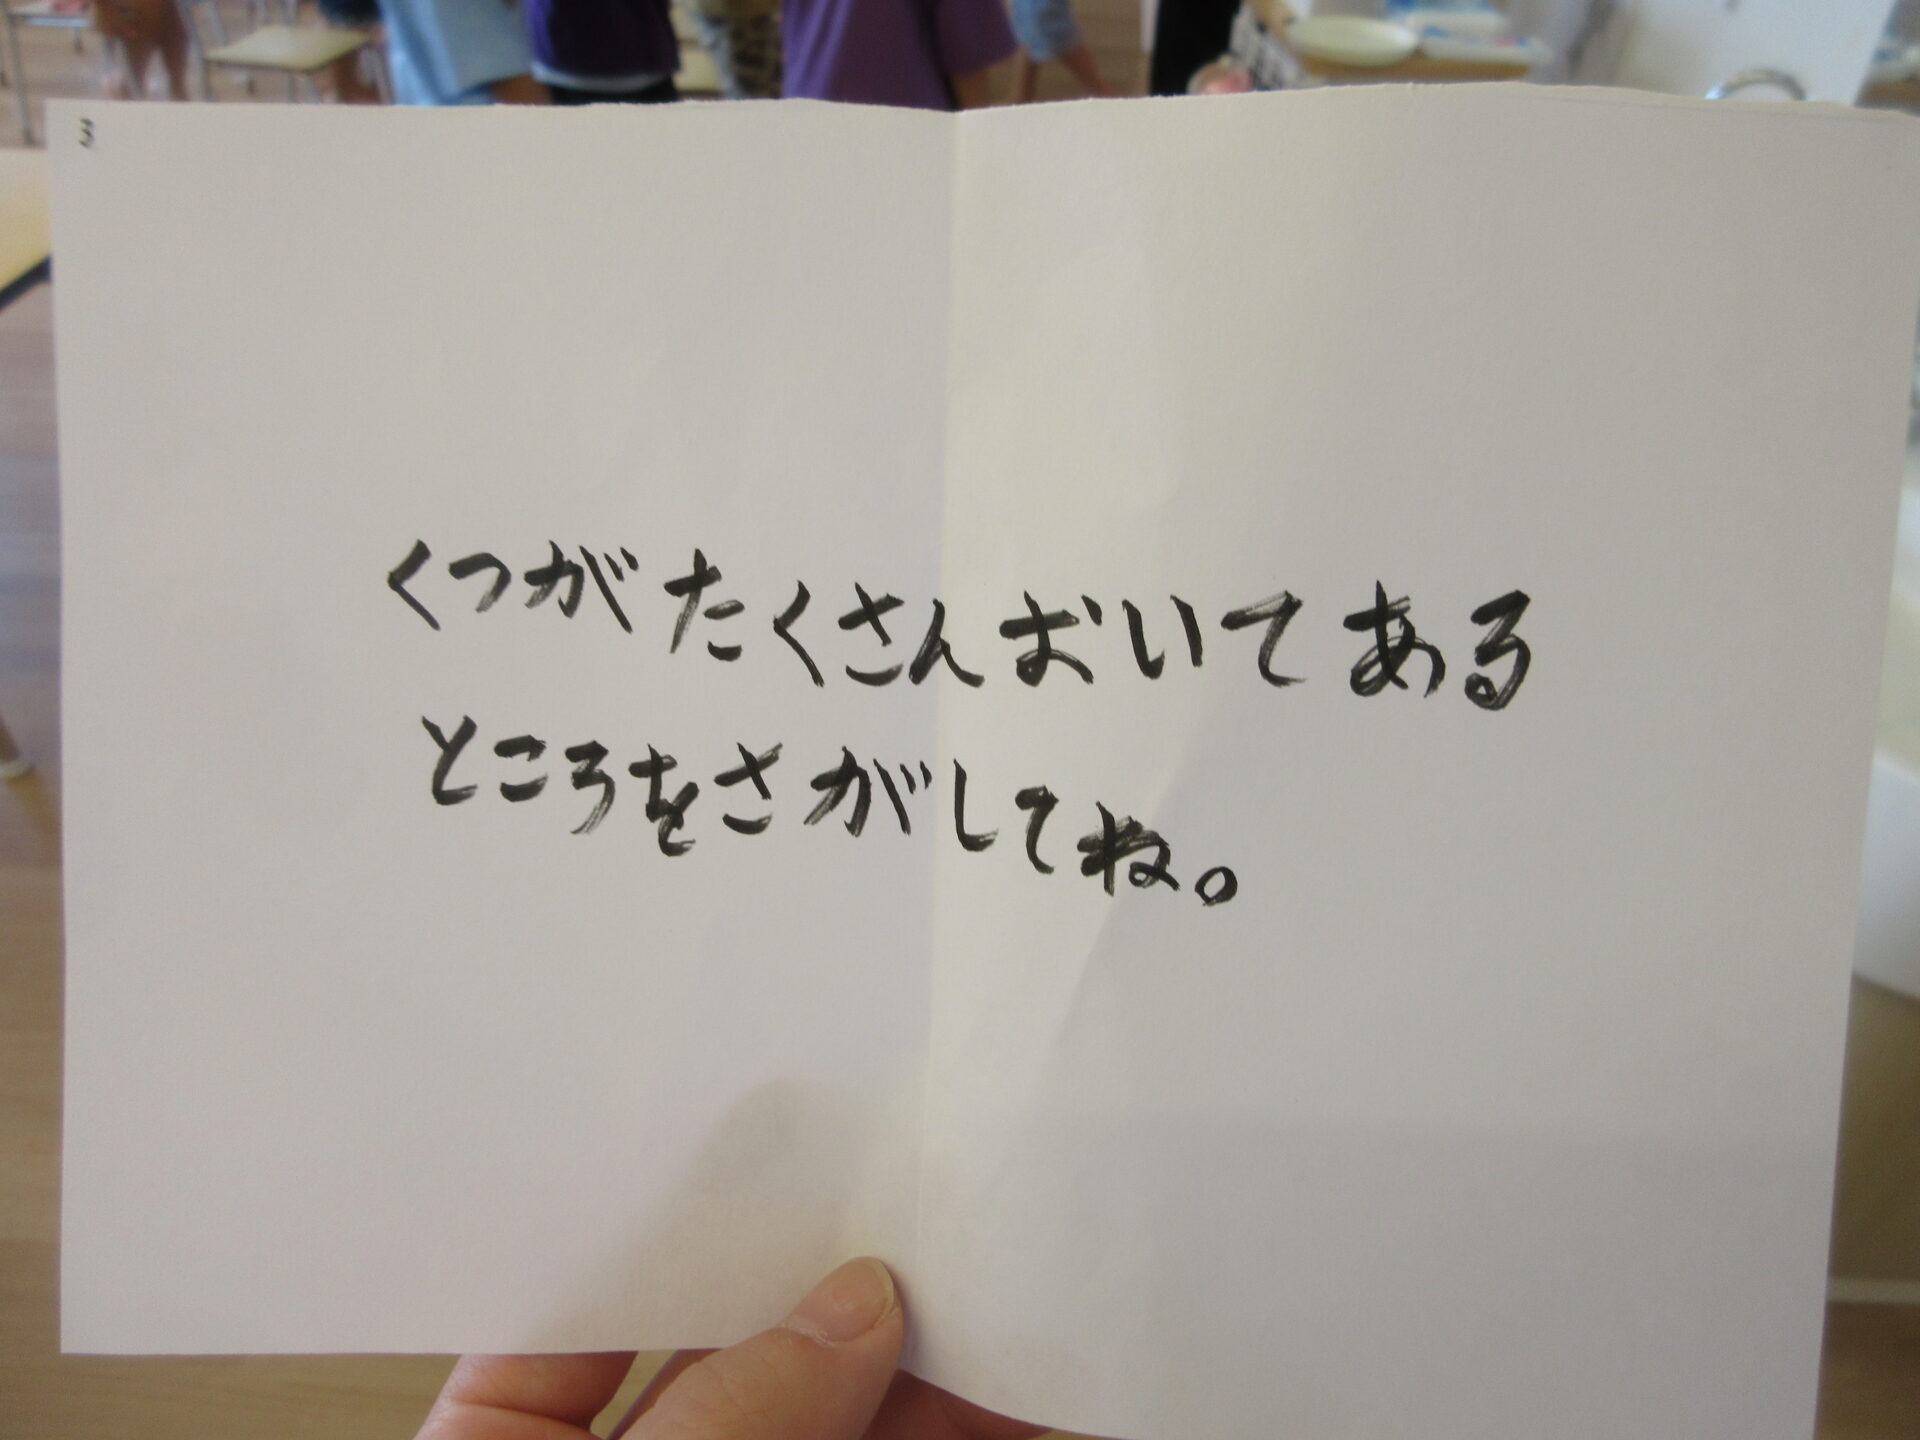 3
くつが たくさん おいて ある
ところをさがしてね。